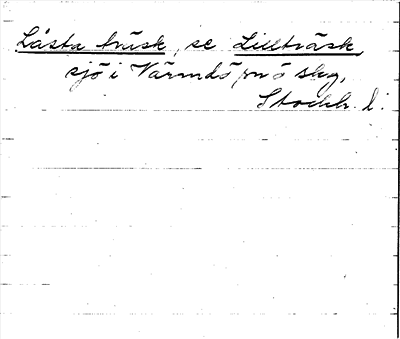 Låsta träsk, se Lillträsk,
sjö i Värmdö, sn ö skg,
Stockh. l.